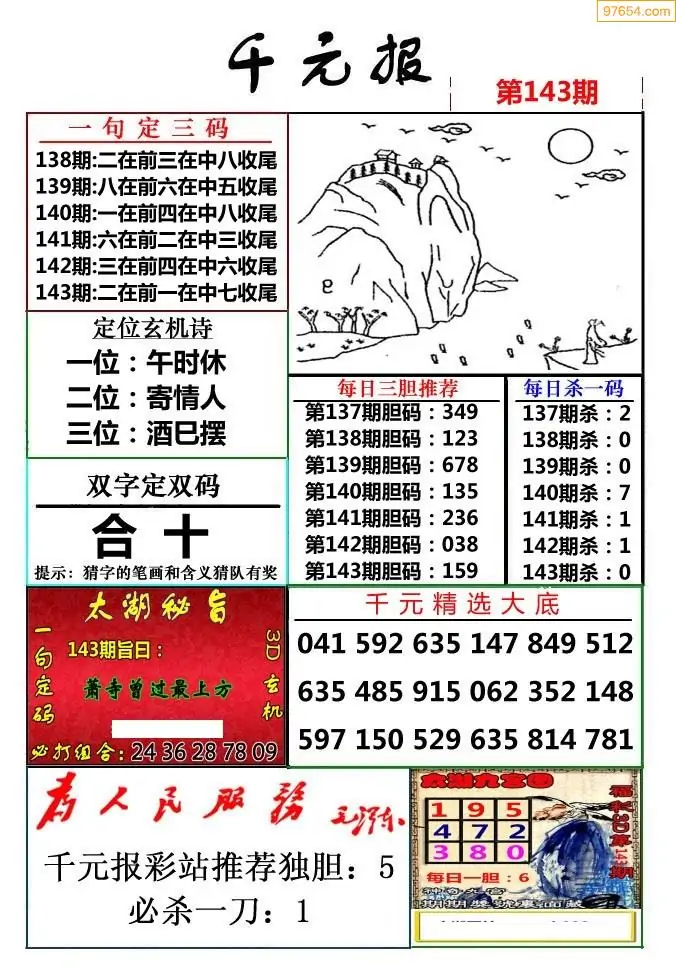 97654.com
千元报
第143期
一句定三码
138期:二在前三在中八收尾
139期:八在前六在中五收尾
140期:一在前四在中八收尾
141期:六在前二在中三收尾
142期:三在前四在中六收尾
143期:二在前一在中七收尾
定位玄机诗
一位：午时休
二位：寄情人
三位：酒巳摆
双字定双码
合十
提示：猜字的笔画和含义猜队有奖
每日三胆推荐
第137期胆码：349
第138期胆码：123
第139期胆码：678
第140期胆码：135
第141期胆码：236
第142期胆码：038
第143期胆码：159
每日杀一码
137期杀：2
138期杀：0
139期杀：0
140期杀：7
141期杀：1
142期杀：1
143期杀：0
太湖秘旨
一句定码
143期旨曰：
萧寺曾过最上方
3D玄机
必打组合：24 36 28 78 09
千元精选大底
041 592 635 147 849 512
635 485 915 062 352 148
597 150 529 635 814 781
为人民服务
毛泽东
千元报彩站推荐独胆：5
必杀一刀：1
太湖九宫图
1 9 5
4 7 2
3 8 0
福彩3D第143期
每日一胆：6
期期奖号里面藏